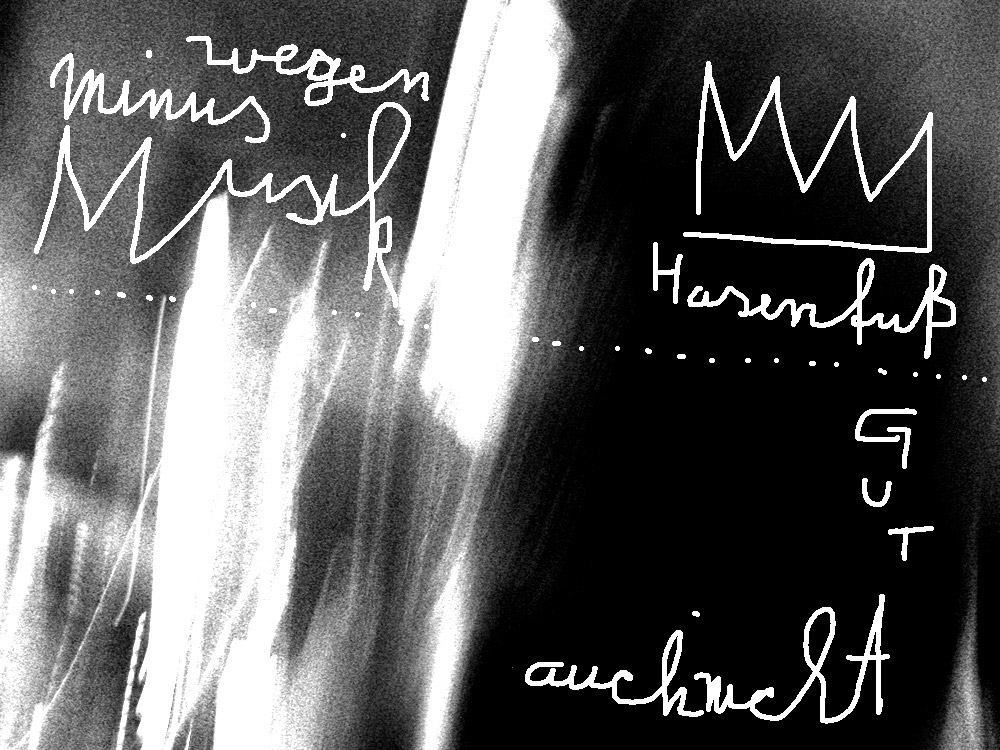 wegen
minus
Musik
Hasenfuß
G
U
T
auch nicht